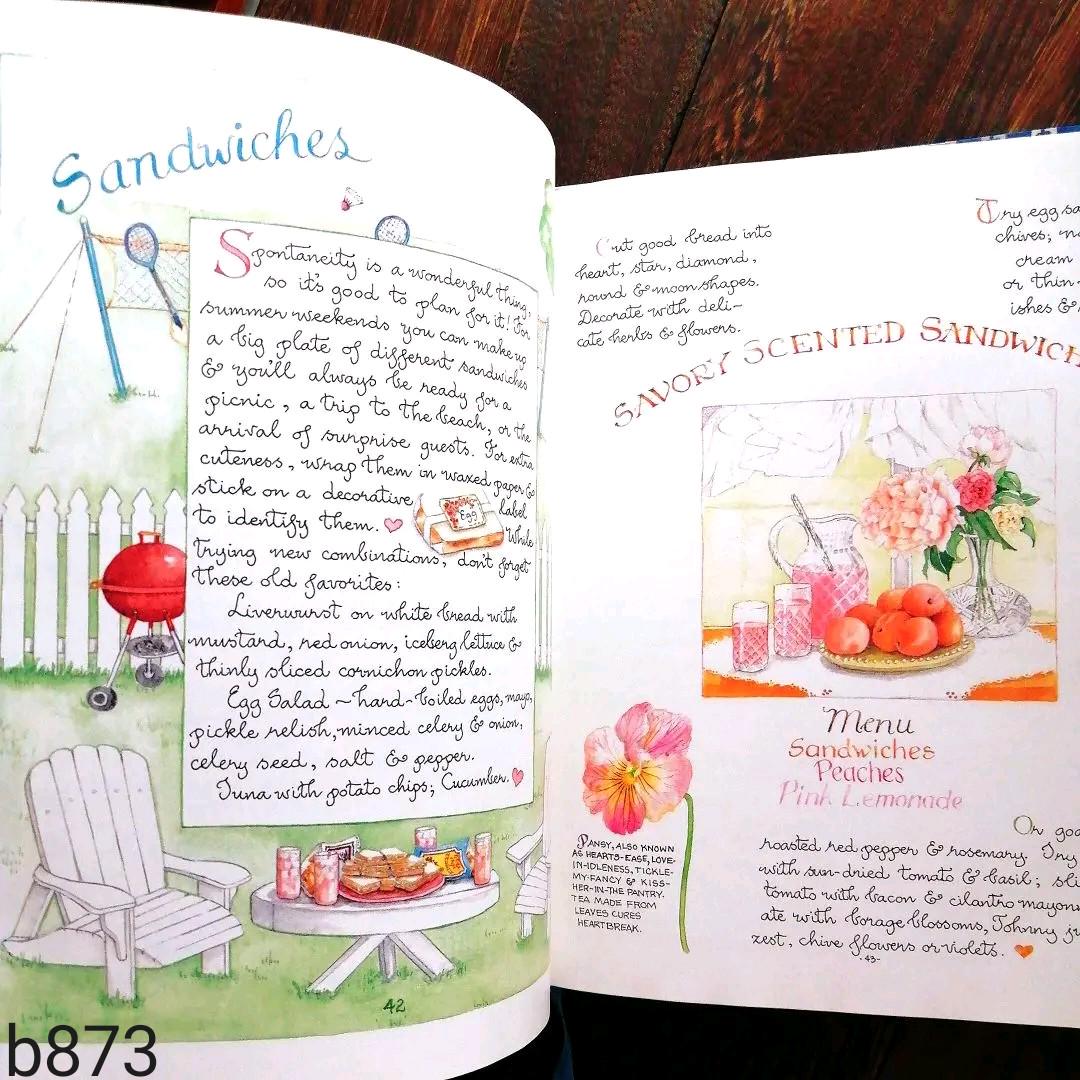 Sandwiches
Spontaneity is a wonderful thing,
so it's good to plan for it! For
summer weekends you can make up
a big plate of different sandwiches
& you'll always be ready for a
picnic, a trip to the beach, or the
arrival of surprise guests. For extra
cuteness, wrap them in waxed paper &
stick on a decorative label
Egg
to identify them. While
trying new combinations, don't forget
these old favorites:
Liverwurst on white bread with
mustard, red onion, iceberg lettuce &
thinly sliced cornichon pickles.
Egg Salad ~ hard-boiled eggs, mayo,
pickle relish, minced celery & onion,
celery seed, salt & pepper.
Tuna with potato chips; Cucumber.
42
Cut good bread into
heart, star, diamond,
round & moon shapes.
Decorate with deli-
cate herbs & flowers.
Try egg sa
chives;
cream
or thin
ishes &
SAVORY SCENTED SANDWICH
Menu
Sandwiches
Peaches
Pink Lemonade
PANSY, ALSO KNOWN
AS HEARTS-EASE, LOVE-
IN-IDLENESS, TICKLE-
MY-FANCY & KISS-
HER-IN-THE PANTRY.
TEA MADE FROM
LEAVES CURES
HEARTBREAK.
Or goa
roasted red pepper & rosemary. Try
with sun-dried tomato & basil; sli
tomato with bacon & cilantro mayon
ate with borage blossoms, Johnny ju
zest, chive flowers or violets.
-43-
b873